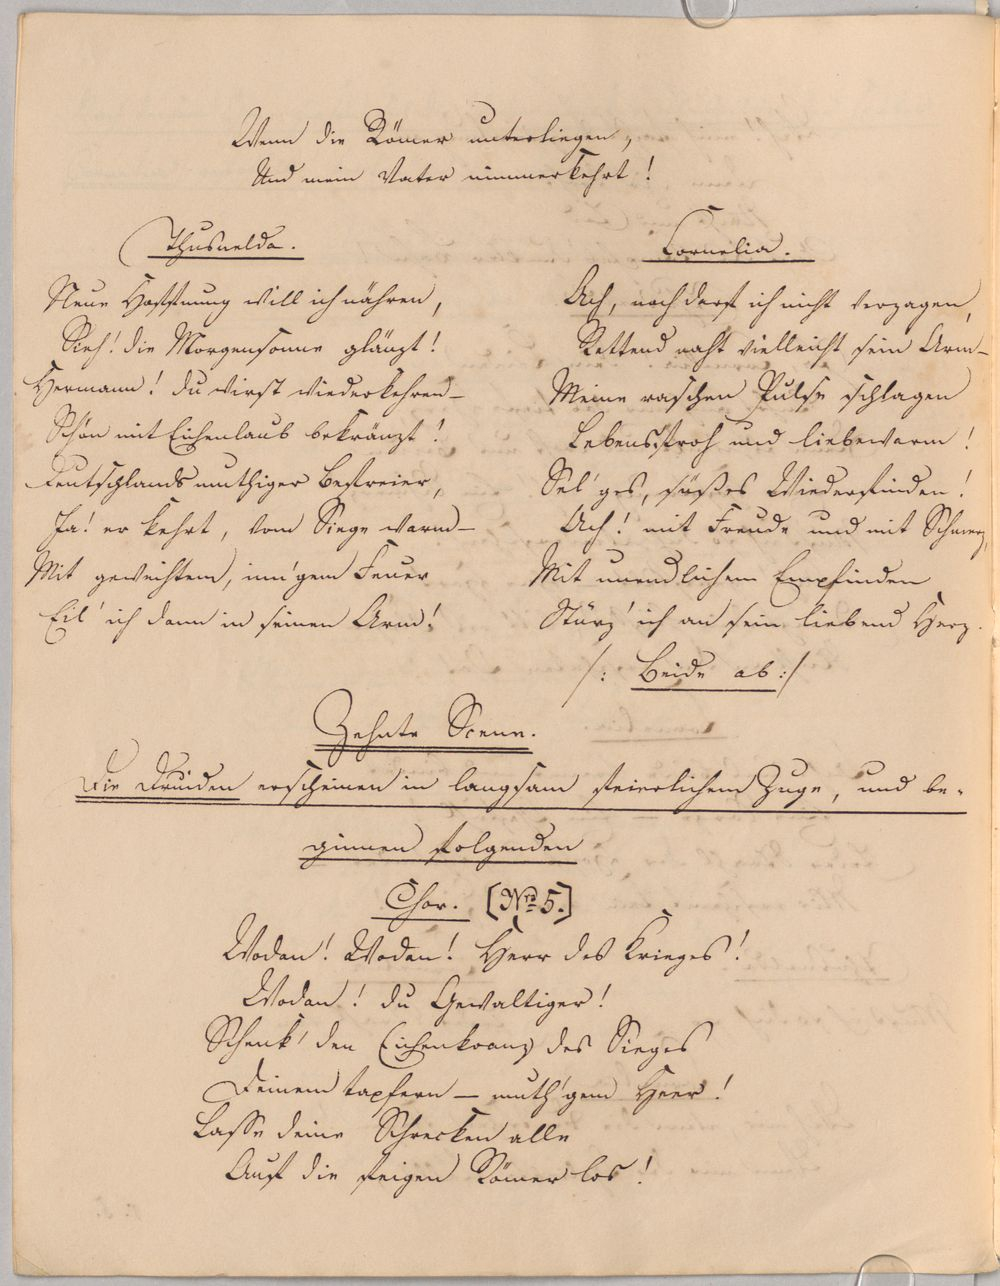 Wenn die Römer unterliegen,
Und mein Vater nimmerkehrt!
Thusnelda.
Neue Hoffnung will ich nähren,
Sieh! die Morgensonne glänzt!
Hermann! du wirst wiederkehren—
Schön mit Eichenlaub bekränzt!
Deutschlands muthiger Befreier,
Ja! er kehrt, vom Siege warm—
Mit geweihtem, inn'gem Feuer
Eil' ich dann in seinen Arm!
Cornelia.
Ach, noch darf ich nicht verzagen,
Rettend naht vielleicht sein Arm—
Meine raschen Pulse schlagen
Lebensfroh und liebewarm!
Sel'ges, süßes Wiederfinden!
Ach! mit Freude und mit Schmerz,
Mit unendlichem Empfinden
Stürz' ich an sein liebend Herz.
/: Beide ab :/
Zehnte Scene.
Die Druiden erscheinen in langsam feierlichem Zuge, und be-
ginnen folgenden
Chor. [Nro 5.]
Wodan! Wodan! Herr des Krieges!
Wodan! du Gewaltiger!
Schenk' den Eichenkranz des Sieges
Deinem tapfern — muth'gem Heer!
Lasse deine Schrecken alle
Auf die feigen Römer los!